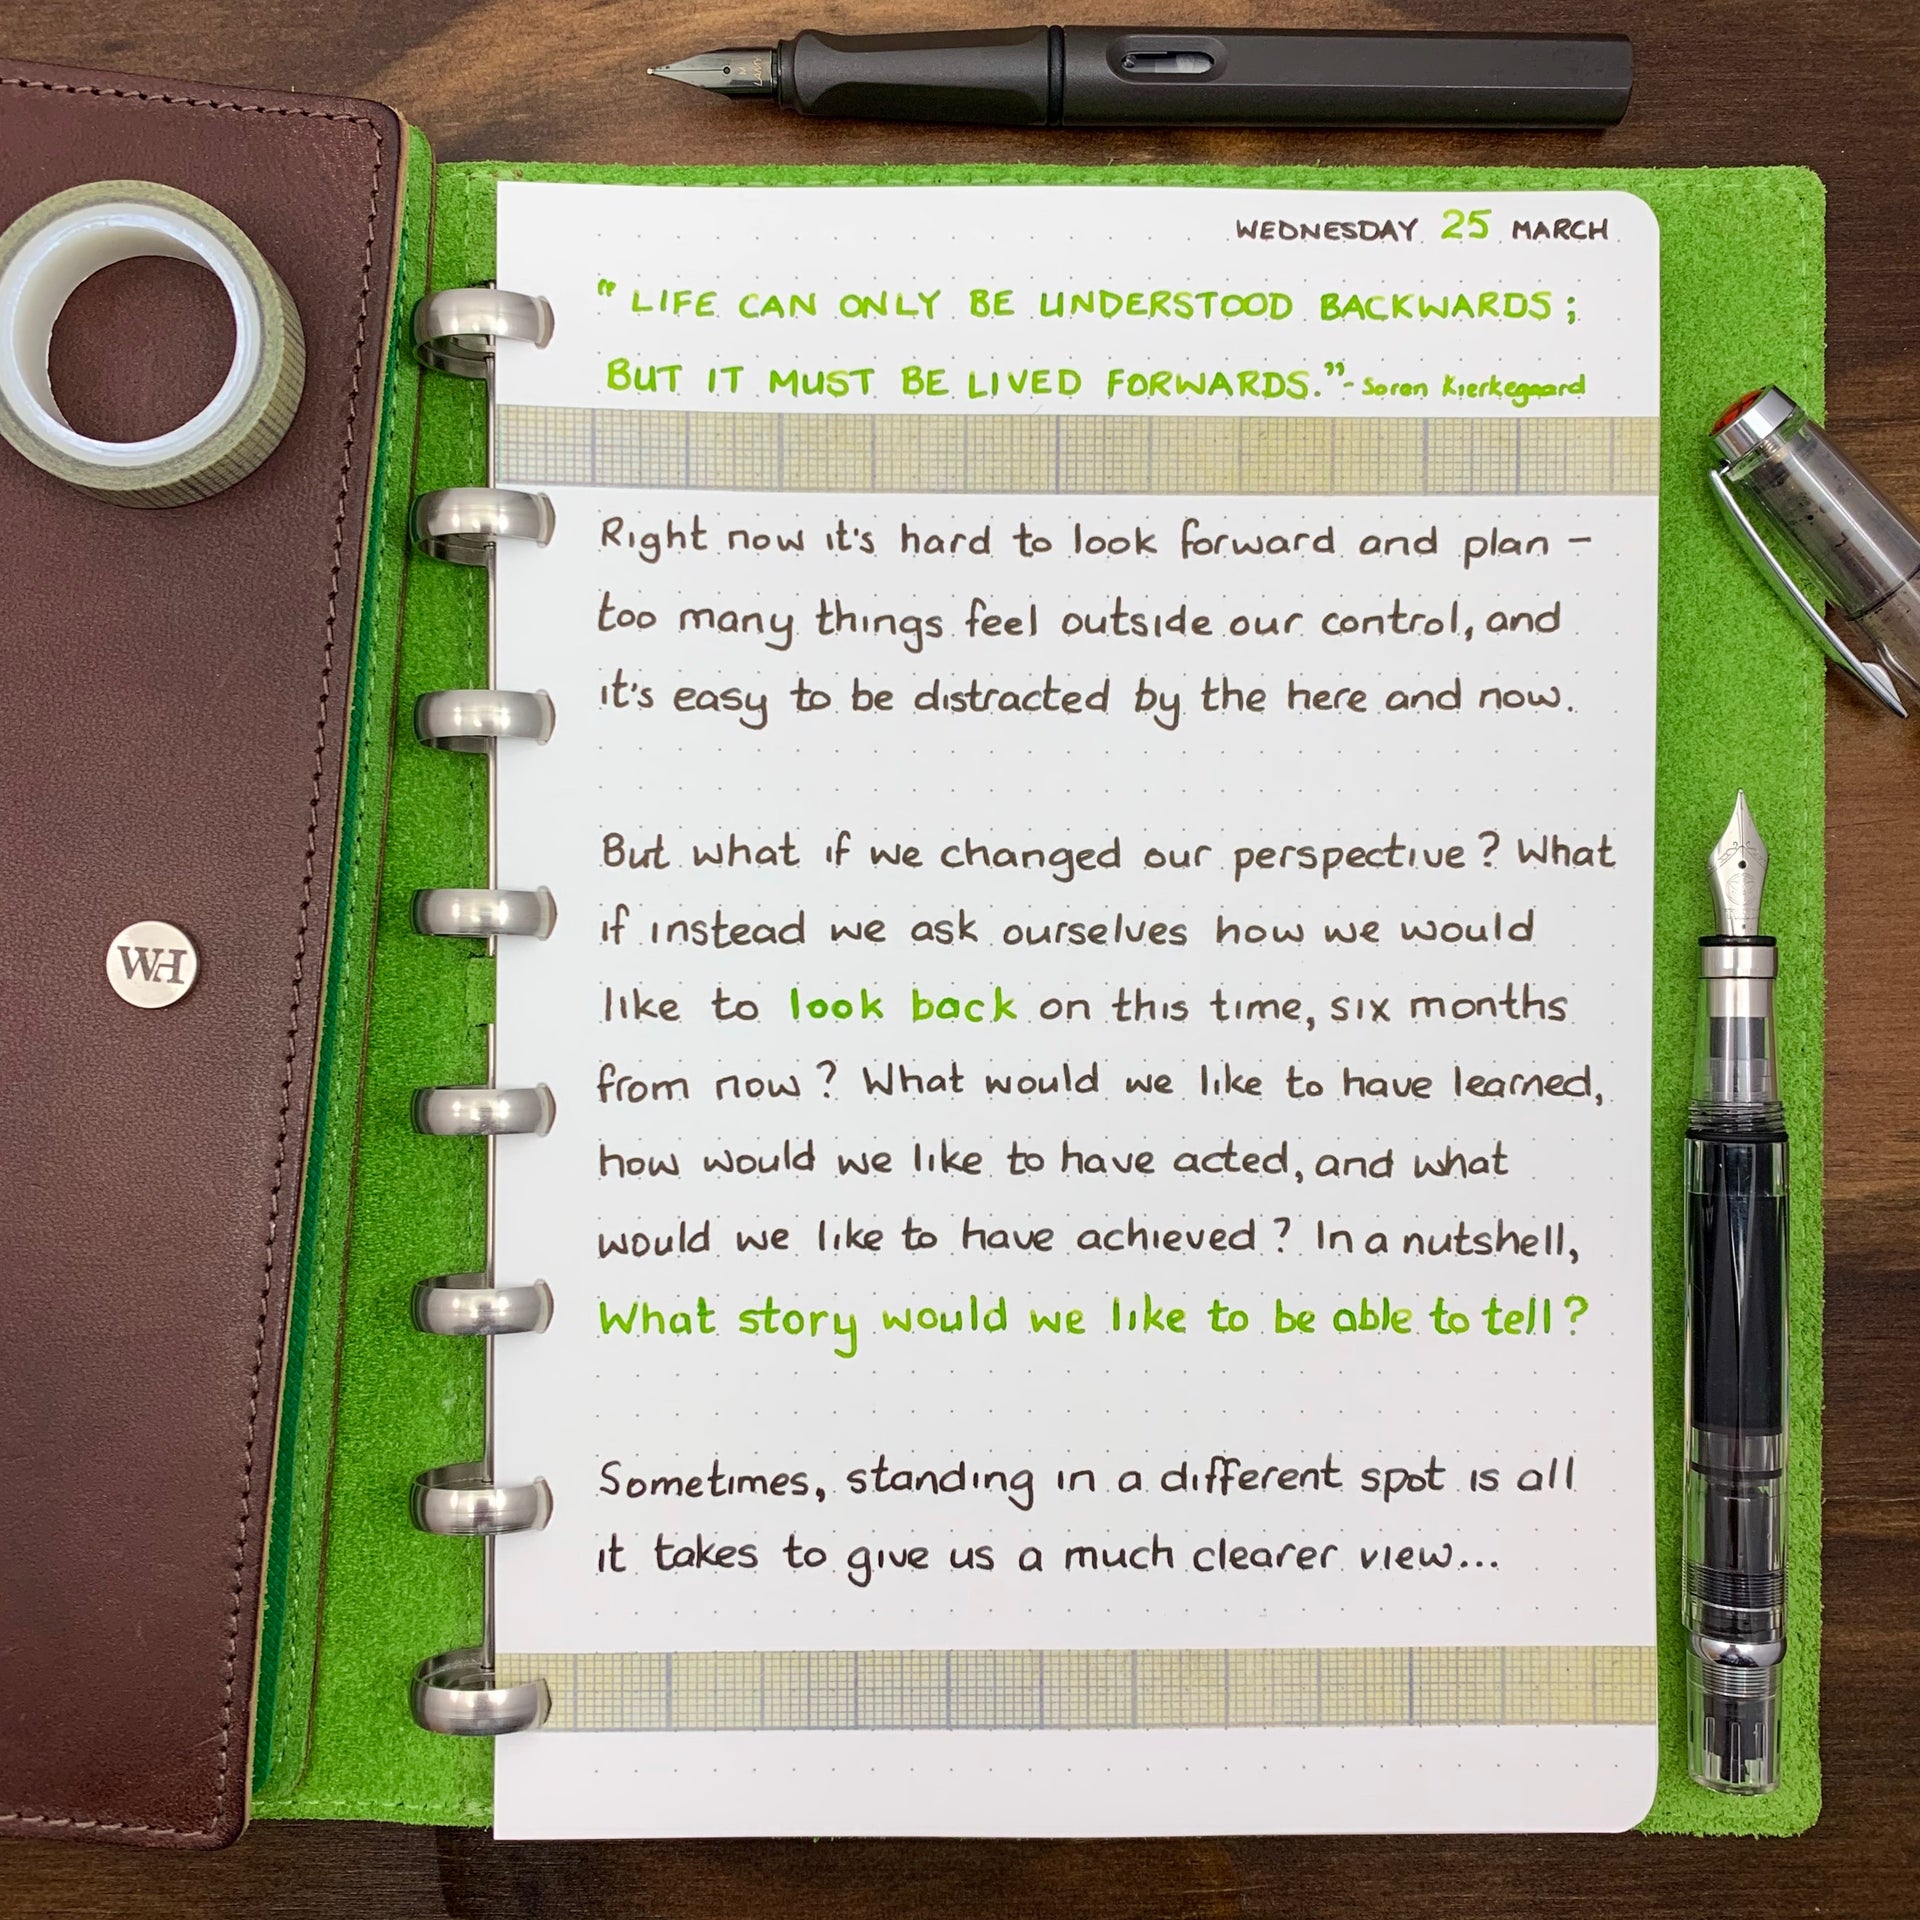 LAMY
M
WEDNESDAY 25 MARCH
"LIFE CAN ONLY BE UNDERSTOOD BACKWARDS;
BUT IT MUST BE LIVED FORWARDS."- Soren Kierkegaard
Right now it's hard to look forward and plan -
too many things feel outside our control, and
it's easy to be distracted by the here and now.
But what if we changed our perspective? What
if instead we ask ourselves how we would
like to look back on this time, six months
from now? What would we like to have learned,
how would we like to have acted, and what
would we like to have achieved? In a nutshell,
What story would we like to be able to tell?
Sometimes, standing in a different spot is all
it takes to give us a much clearer view...
WH